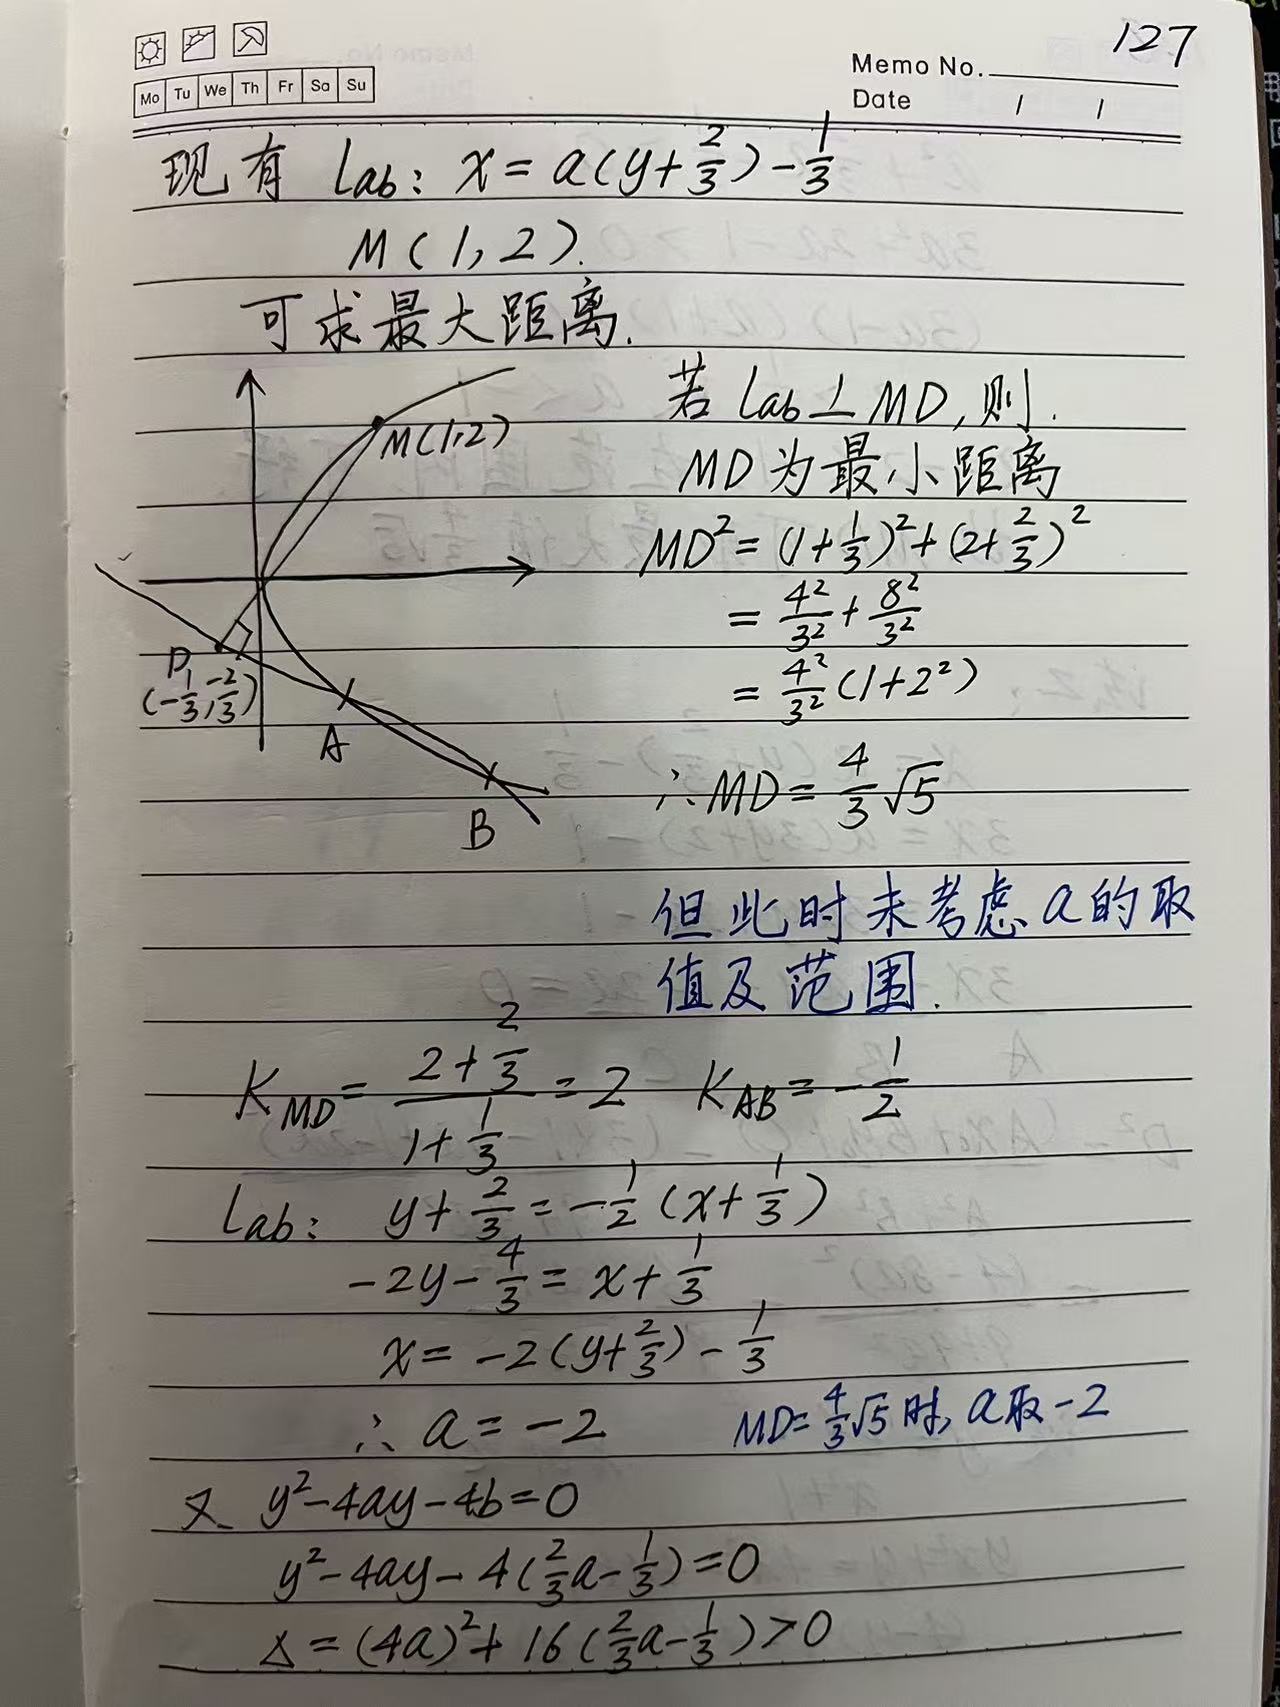 127
Memo No.
Mo Tu We Th Fr Sa Su
Date / /
现有 lab: x = a(y+2/3) - 1/3
M(1,2).
可求最大距离.
M(1,2)
D
(-1/3, -2/3)
A
B
若lab⊥MD,则.
MD为最小距离
MD² = (1+1/3)² + (2+2/3)²
= 4²/3² + 8²/3²
= 4²/3² (1+2²)
∴MD = 4/3 √5
但此时未考虑a的取
值及范围.
K_MD = (2+2/3)/(1+1/3) = 2 K_AB = -1/2
lab: y+2/3 = -1/2 (x+1/3)
-2y - 4/3 = x + 1/3
x = -2(y+2/3) - 1/3
∴ a = -2 MD=4/3√5 时, a取-2
又 y²-4ay-4b=0
y²-4ay-4(2/3a-1/3)=0
Δ=(4a)²+16(2/3a-1/3)>0